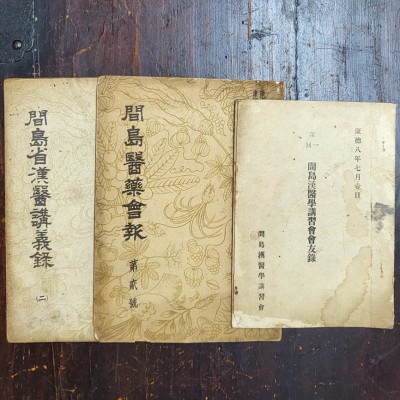 間島省漢醫講義錄
(二)
間島醫藥會報
第貳號
康德八年七月壹日
第一回
間島漢醫學講習會會友錄
間島漢醫學講習會